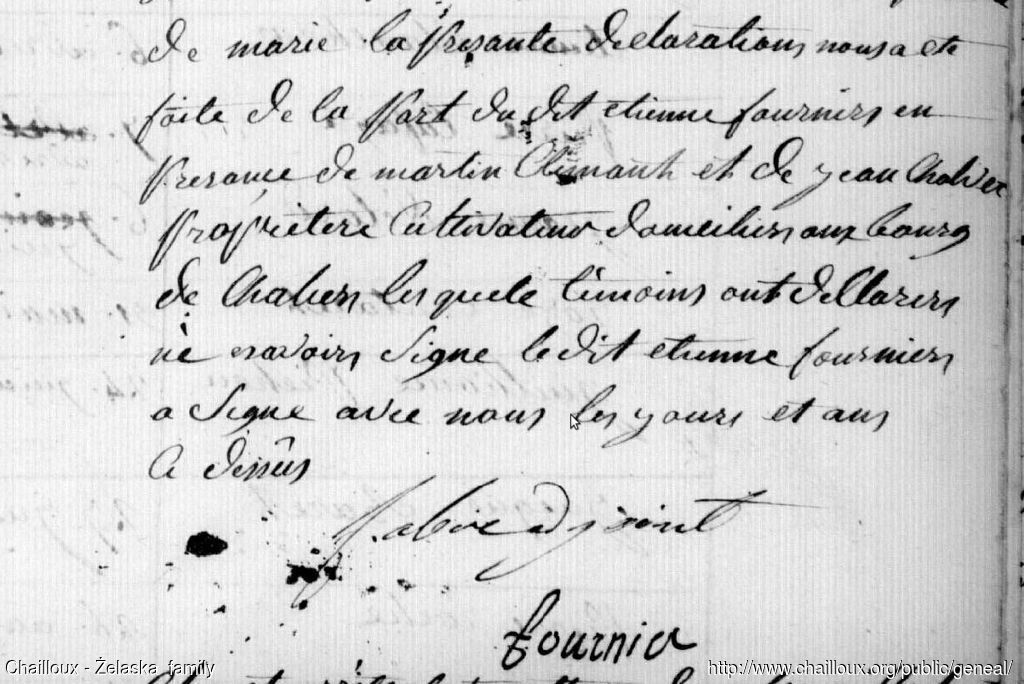 de marie la presante declarations nous a ete
faite de la part du dit etienne fourniers en
presance de martin Climant et de jean Chalvet
proprietere Cultivateur domeiliers aux bourg
de Chaliers les quele témoins ont decllarers
nè savoirs Signe le dit etienne fourniers
a Signe avec nous les yours et ans
Ce dessûs
fabre adjoint
fournier
Chailloux - Żelaska family
http://www.chailloux.org/public/geneal/